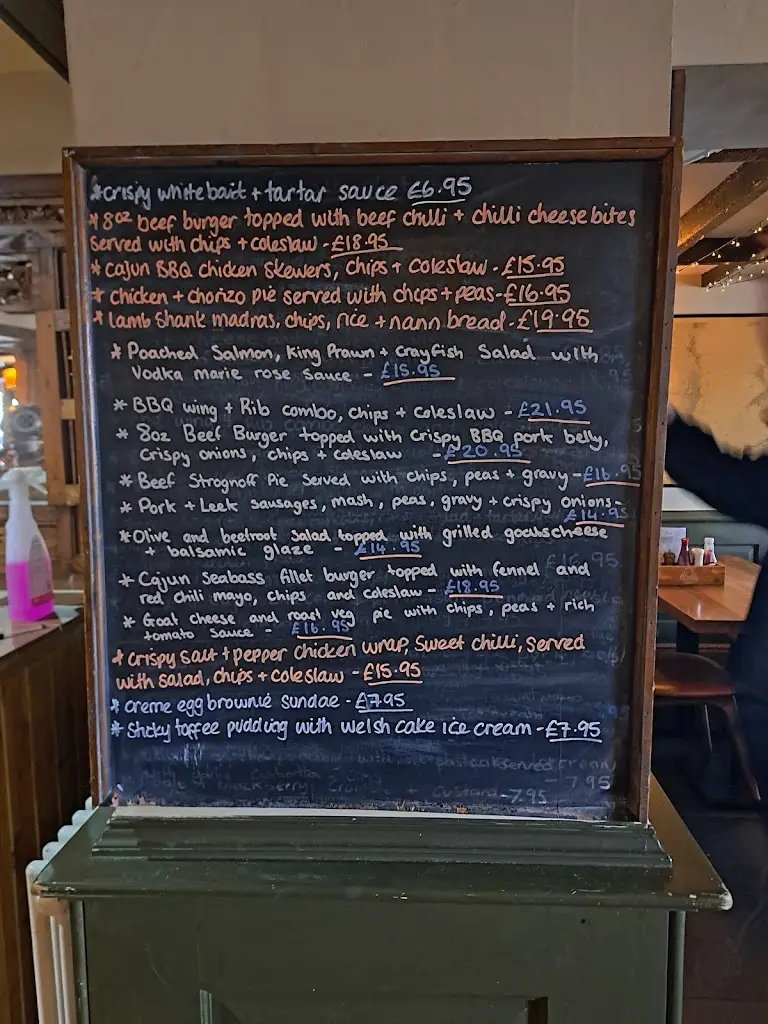 *crispy whitebait + tartar sauce £6.95
*8oz beef burger topped with beef chilli + chilli cheese bites
served with chips + coleslaw - £18.95
*cajun BBQ chicken skewers, chips + coleslaw - £15.95
* chicken + chorizo pie served with chips + peas - £16.95
* lamb shank madras, chips, rice + nann bread - £19.95
* Poached Salmon, King Prawn + Crayfish Salad with
Vodka marie rose sauce - £15.95
* BBQ wing + Rib combo, chips + coleslaw - £21.95
* 8oz Beef Burger topped with Crispy BBQ pork belly,
crispy onions, chips + coleslaw - £20.95
* Beef Strognoff Pie Served with chips, peas + gravy - £16.95
* Pork + Leek sausages, mash, peas, gravy + crispy onions -
£14.95
*Olive and beetroot salad topped with grilled goatscheese
+ balsamic glaze - £14.95
* Cajun Seabass fillet burger topped with fennel and
red chili mayo, chips and coleslaw - £18.95
* Goat cheese and roast veg pie with chips, peas + rich
tomato sauce - £16.95
* crispy salt + pepper chicken wrap, sweet chilli, served
with salad, chips + coleslaw - £15.95
* creme egg brownie sundae - £7.95
* Sticky toffee pudding with welsh cake ice cream - £7.95
served cream
- 7.95
blackberry + custard - 7.95